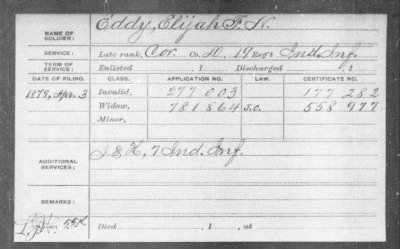 NAME OF SOLDIER: Eddy, Elijah F. N.
SERVICE: Late rank, Cor. Co. D, 19 Reg't Ind. Inf.
TERM OF SERVICE: Enlisted , 1 Discharged , 1
DATE OF FILING. CLASS. APPLICATION NO. LAW. CERTIFICATE NO.
1879, Apr. 3 Invalid, 277 003 177 282
Widow, 781 864 558 977
Minor,
ADDITIONAL SERVICES: 7 Ind. Inf.
REMARKS:
Died , 1 , at